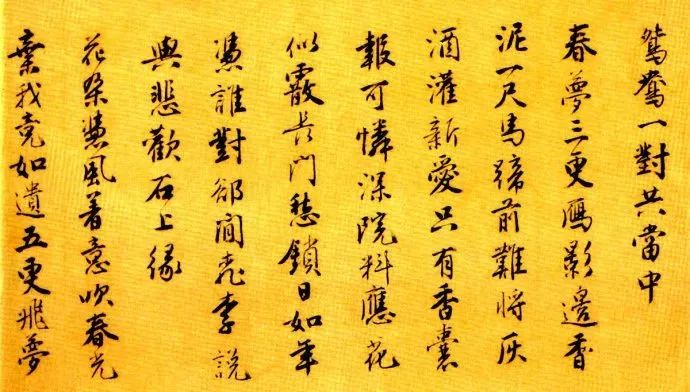 鴛鴦一對共當中
春夢三更鴈影邊香
泥一尺馬蹄前難將灰
酒灌新愛只有香囊
報可憐深院料應花
似霰長門愁鎖日如年
憑誰對卻閒桃李說
與悲歡石上緣
花朵憑風着意吹春光
棄我竟如遺五更飛夢